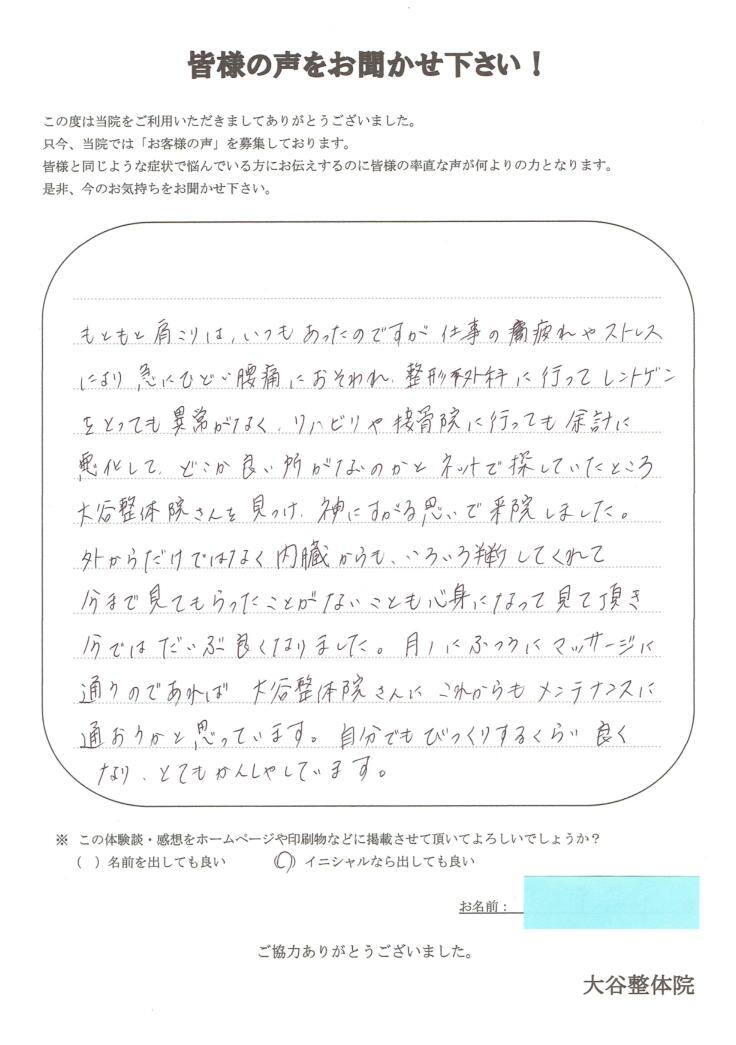 皆様の声をお聞かせ下さい！
この度は当院をご利用いただきましてありがとうございました。
只今、当院では「お客様の声」を募集しております。
皆様と同じような症状で悩んでいる方にお伝えするのに皆様の率直な声が何よりの力となります。
是非、今のお気持ちをお聞かせ下さい。
もともと肩こりは、いつもあったのですが 仕事の疲れやストレス
により 急にひどい腰痛におそわれ、整形外科に行ってレントゲン
をとっても異常がなく、リハビリや接骨院に行っても余計に
悪化して、どこか良い所がないのかとネットで探していたところ
大谷整体院さんを見つけ、神にすがる思いで来院しました。
外からだけではなく内臓からも、いろいろ判断してくれて
今まで見てもらったことがないことも心身になって見て頂き
今ではだいぶ良くなりました。月1にふつうにマッサージに
通うのであれば 大谷整体院さんに これからもメンテナンスに
通おうかと思っています。自分でもびっくりするくらい良く
なり、とてもかんしゃしています。
※ この体験談・感想をホームページや印刷物などに掲載させて頂いてよろしいでしょうか？
（ ）名前を出しても良い （○）イニシャルなら出しても良い
お名前：
ご協力ありがとうございました。
大谷整体院